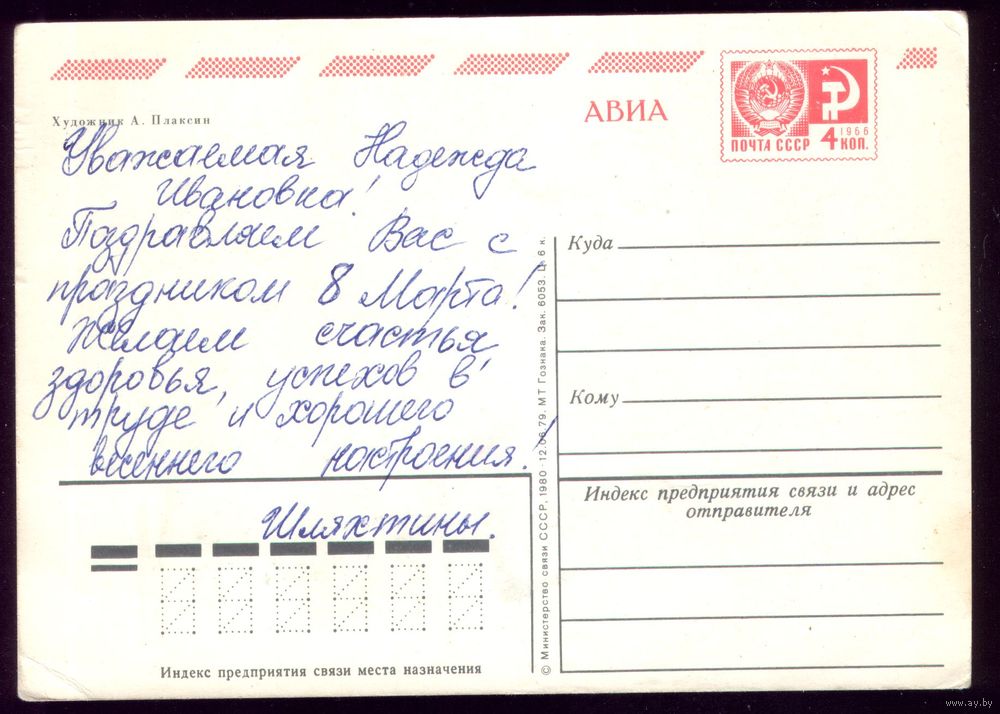 Художник А. Плаксин
АВИА
ПОЧТА СССР
1966
4 КОП.
Уважаемая Надежда
Ивановна!
Поздравляем Вас с
праздником 8 Марта!
Желаем счастья
здоровья, успехов в
труде и хорошего
весеннего настроения!
Шляхтины.
Индекс предприятия связи места назначения
© Министерство связи СССР, 1980 · 12.06.79. МТ Гознака. Зак. 6053. Ц. 6 к.
Куда
Кому
Индекс предприятия связи и адрес
отправителя
www.ay.by